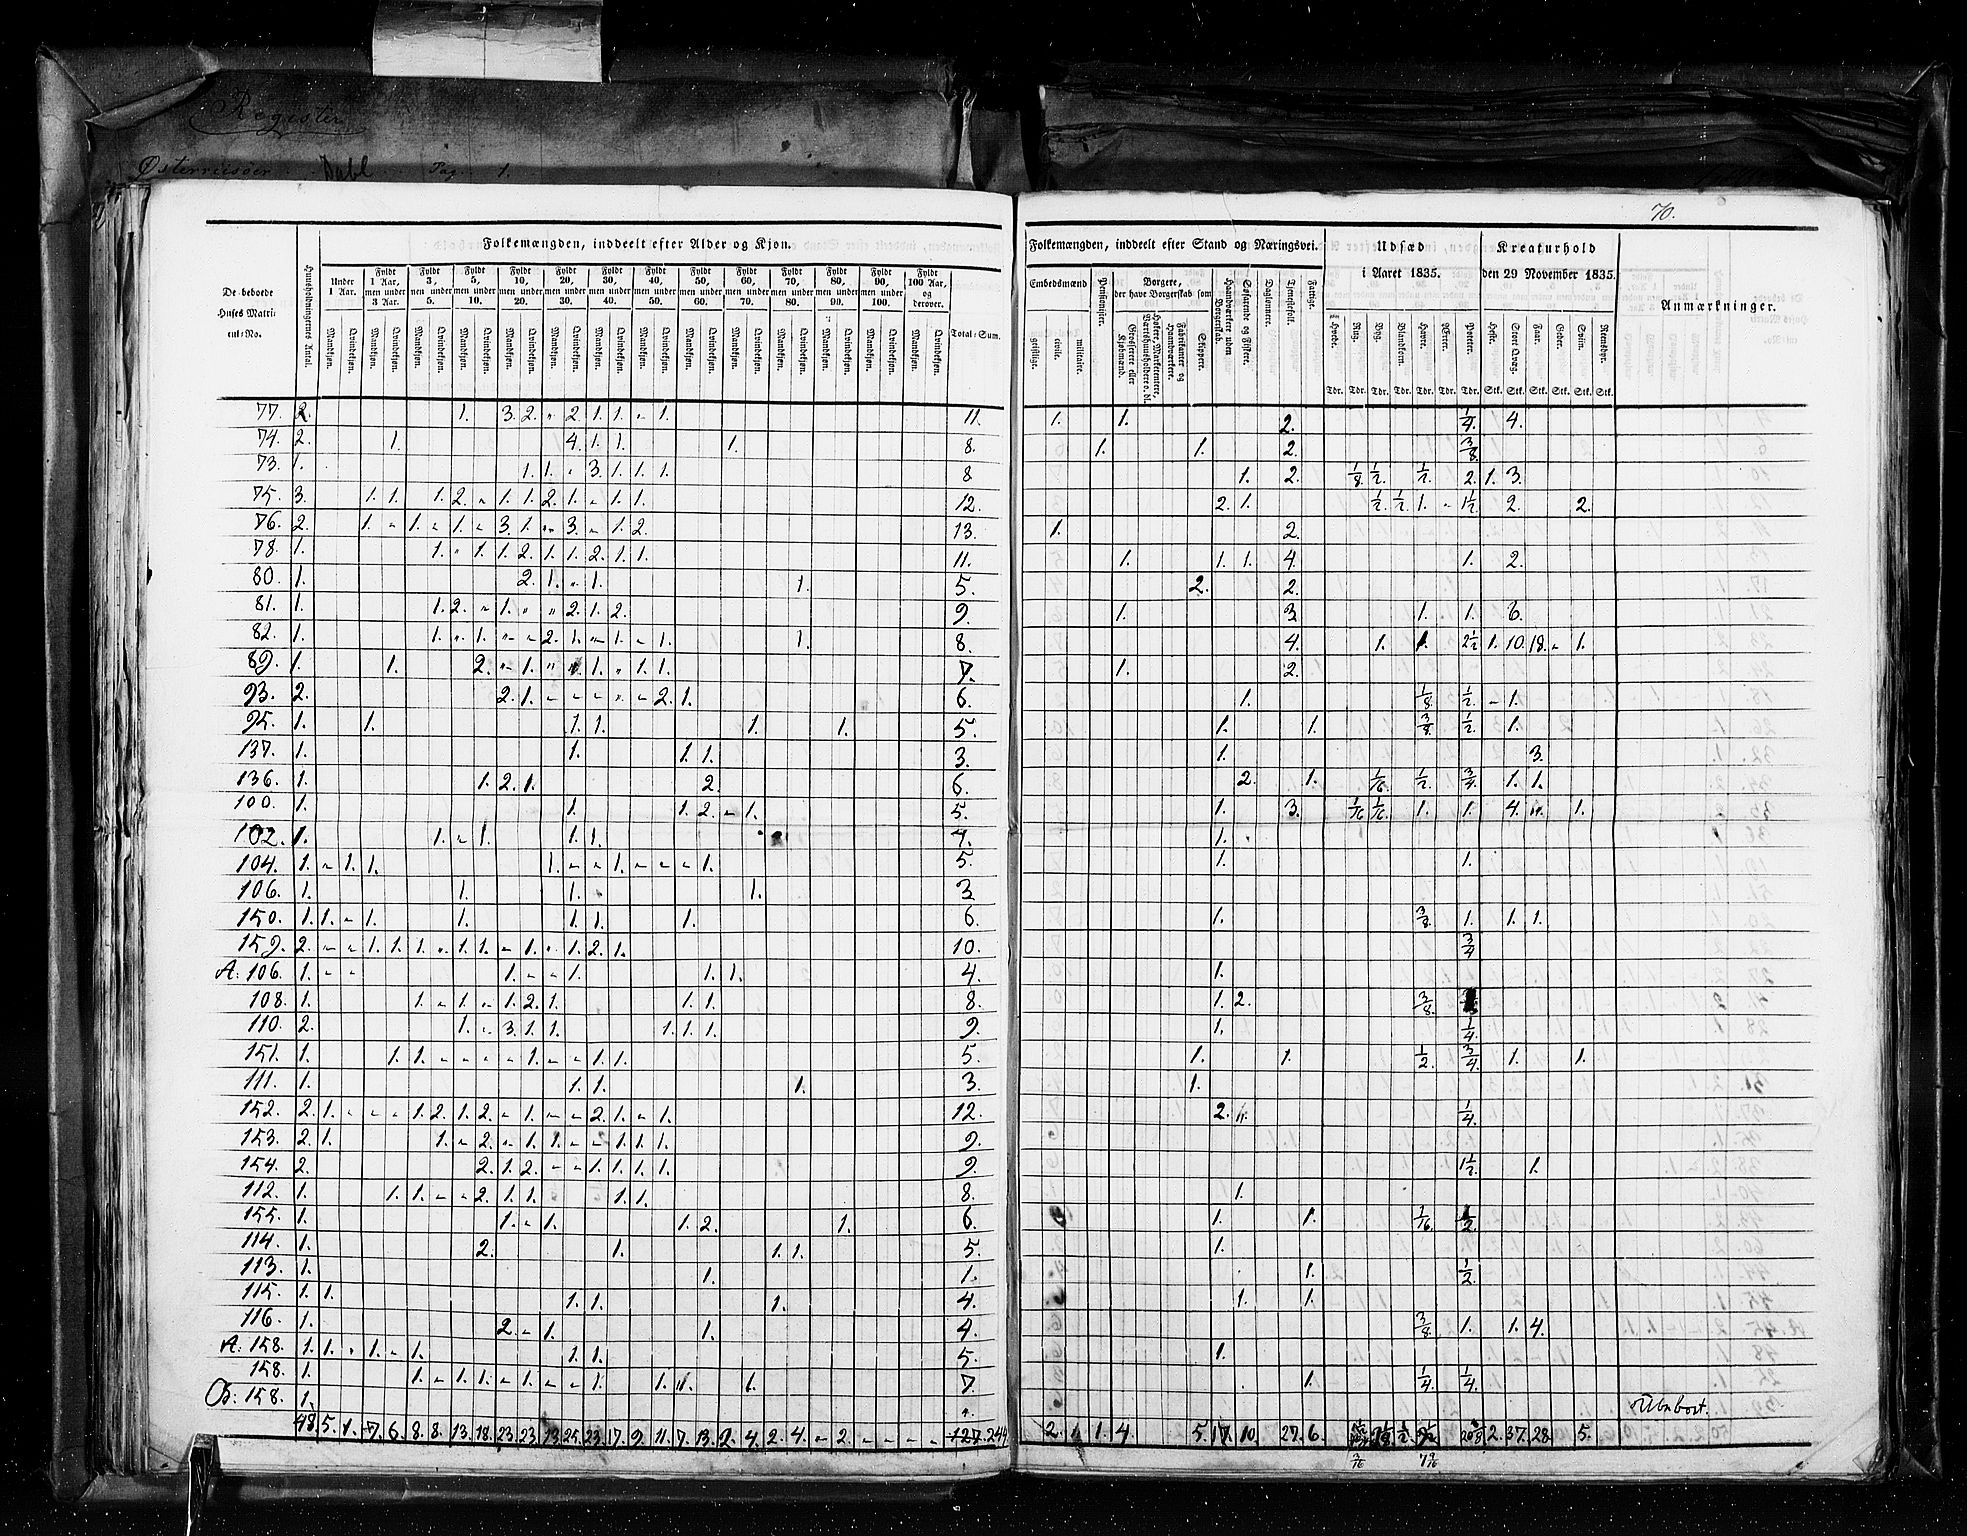 Register
Østerriisøer Dahl Pag. 1.
70.
De beboede Huses Matricul-No.
Huusholdningernes Antal.
Folkemængden, inddeelt efter Alder og Kjøn.
Under 1 Aar.
Fyldt 1 Aar, men under 3 Aar.
Fyldt 3, men under 5.
Fyldt 5, men under 10.
Fyldt 10, men under 20.
Fyldt 20, men under 30.
Fyldt 30, men under 40.
Fyldt 40, men under 50.
Fyldt 50, men under 60.
Fyldt 60, men under 70.
Fyldt 70, men under 80.
Fyldt 80, men under 90.
Fyldt 90, men under 100.
Fyldt 100 Aar, og derover.
Mandkjøn. Qvindekjøn.
Total-Sum.
Folkemængden, inddeelt efter Stand og Næringsvei.
Embedsmænd
geistlige. civile. militaire.
Pensionister.
Borgere, der have Borgerskab som
Grosserere eller Kjøbmænd.
Høkere, Marketentere, Værthuusholdere o. dl.
Fabrikanter og Haandværkere.
Skippere.
Haandværkere uden Borgerskab.
Søfarende og Fiskere.
Daglønnere.
Tjenestefolk.
Fattige.
Udsæd i Aaret 1835.
Hvede. Rug. Byg. Blandkorn. Havre. Erter. Poteter.
Tdr. Tdr. Tdr. Tdr. Tdr. Tdr. Tdr.
Kreaturhold den 29 November 1835.
Heste. Stort Qvæg. Faar. Geder. Sviin. Rensdyr.
Stk. Stk. Stk. Stk. Stk. Stk.
Anmærkninger.
77. 2. 1. 3. 2. " 2. 1. 1. " 1. 11. 1. 1. 2. 1/4. 4.
74. 2. 1. 4. 1. 1. 1. 8. 1. 1. 2. 3/8.
73. 1. 1. 1. " 3. 1. 1. 1. 8 1. 2. 1/8 1/2. 1/2. 2. 1. 3.
75. 3. 1. 1. 1. 2. " 1. 1. 2. 1. " 1. 1. 12. 2. 1. 1/2. 1/2. 1. " 1 1/2. 2. 2.
76. 2. 1. " 1. " 1. " 3. 1. " 3. " 1. 2. 13. 1. 2.
78. 1. 1. " 1. 1. 2. 1. 1. 2. 1. 1. 11. 1. 1. 1. 4. 1. 2.
80. 1. 2. 1. " 1. 1. 5. 2. 2.
81. 1. 1. 2. " 1. " " 2. 1. 2. 9. 1. 3 1. 1. 6.
82. 1. 1. " 1. " " 2. 1. " 1. " 1. 1. 8. 4. 1. 1. 2 1/2 1. 10. 18. " 1.
89. 1. 1. 2. " 1. " 1. " 1. 1. 7. 1. 2.
93. 2. 2. 1. " " " " " 2. 1. 6. 1. 1/8 1/2. " 1.
95. 1. 1. 1. 1. 1. 1. 5. 1. 1. 3/8. 1/2. 1.
137. 1. 1. 1. 1. 3. 1. 3.
136. 1. 1. 2. 1. 2. 6. 2. 1. 1/16. 1/2. 3/4. 1. 1.
100. 1. 1. 1. 2. " 1. 5. 1. 3. 1/16 1/16. 1. 1. 4. 1.
102. 1. 1. " 1. 1. 1. 4. 1.
104. 1. " 1. 1. 1. " " 1. " " " 1. 5. 1. 1.
106. 1. 1. 1. 1. 3
150. 1. 1. " 1. 1. 1. 1. 1. 6. 1. 3/8. 1. 1. 1.
159. 2. " " 1. 1. 1. " 1. 1. " 1. " 1. 2. 1. 10. 3/4
A. 106. 1. " " 1. " " 1. 1. 1. 4. 1.
108. 1. 1. " 1. " 1. 2. 1. 1. 1. 8. 1. 2. 3/8.
110. 2. 1. " 3. 1. 1. 1. 1. 1. 9. 1. 1/4.
151. 1. 1. 1. " " " " 1. " " 1. 1. 5. 1. 1. 1/2. 3/4. 1. 1.
111. 1. 1. 1. 1. 3. 1.
152. 2. 1. " " " 1. 2. 1. 2. " 1. " " 2. 1. " 1. 12. 2. 1/4.
153. 2. 1. 1. " 2. " 1. 1. " " 1. 1. 1. 9.
154. 2. 2. 1. 2. " " 1. 1. 1. 1. 9. 1 1/2. 1.
112. 1. 1. 1. " " 2. 1. 1. 1. 1. 8. 1.
155. 1. 1. " 1. 1. 2. 1. 6. 1. 1. 1/16. 1/2.
114. 1. 2. 1. 1. 1. 5. 1.
113. 1. 1. 1. 1. 1/2.
115. 1. 1. 1. 1. 1. 4. 1. 1.
116. 1. 2. " 1. 1. 4. 3/8. 1. 1. 4.
A. 158. 1. 1. " 1. " 1. 1. 1. 5. 1.
158. 1. 1. " 1. 1. " 1. " " 1. 1. 1. 7. 1. 1/4. 1/4.
B. 158. 1. " Ubeboet.
48 5. 1. 7. 6. 8. 8. 13. 18. 23. 23. 13. 25. 23. 17. 9. 11. 7. 13. 2. 4. 2. 4. " 2. " " " " 127. 244 2. 1. 1. 4 5. 17. 10. 27. 6. 1/2. 20 2. 37. 28. 5.